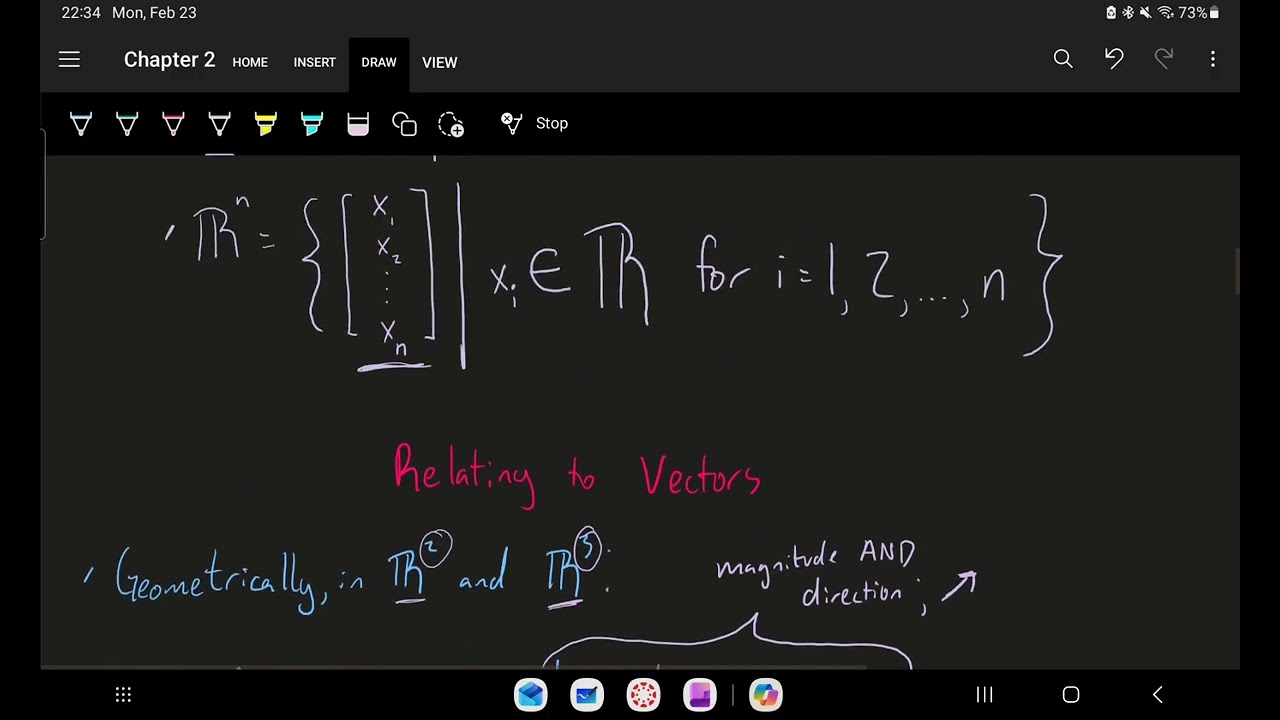 22:34 Mon, Feb 23 73%
Chapter 2 HOME INSERT DRAW VIEW
Stop
ℝⁿ = { [ x₁ x₂ ⋮ xₙ ] | xᵢ ∈ ℝ for i = 1, 2, ..., n }
Relating to Vectors
Geometrically, in ℝ² and ℝ³:
magnitude AND
direction; ↗